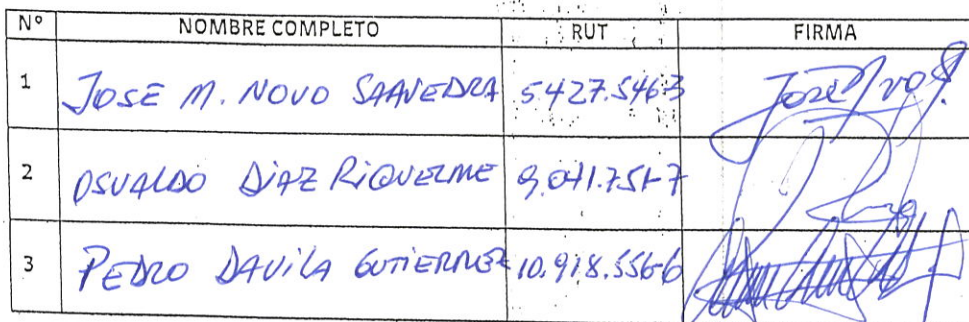 Nº NOMBRE COMPLETO RUT FIRMA
1 JOSE M. NOVO SAAVEDRA 5427.546-3 José Novo S.
2 OSVALDO DIAZ RIQUELME 9.041.751-7
3 PEDRO DAVILA GUTIERREZ 10.918.556-6